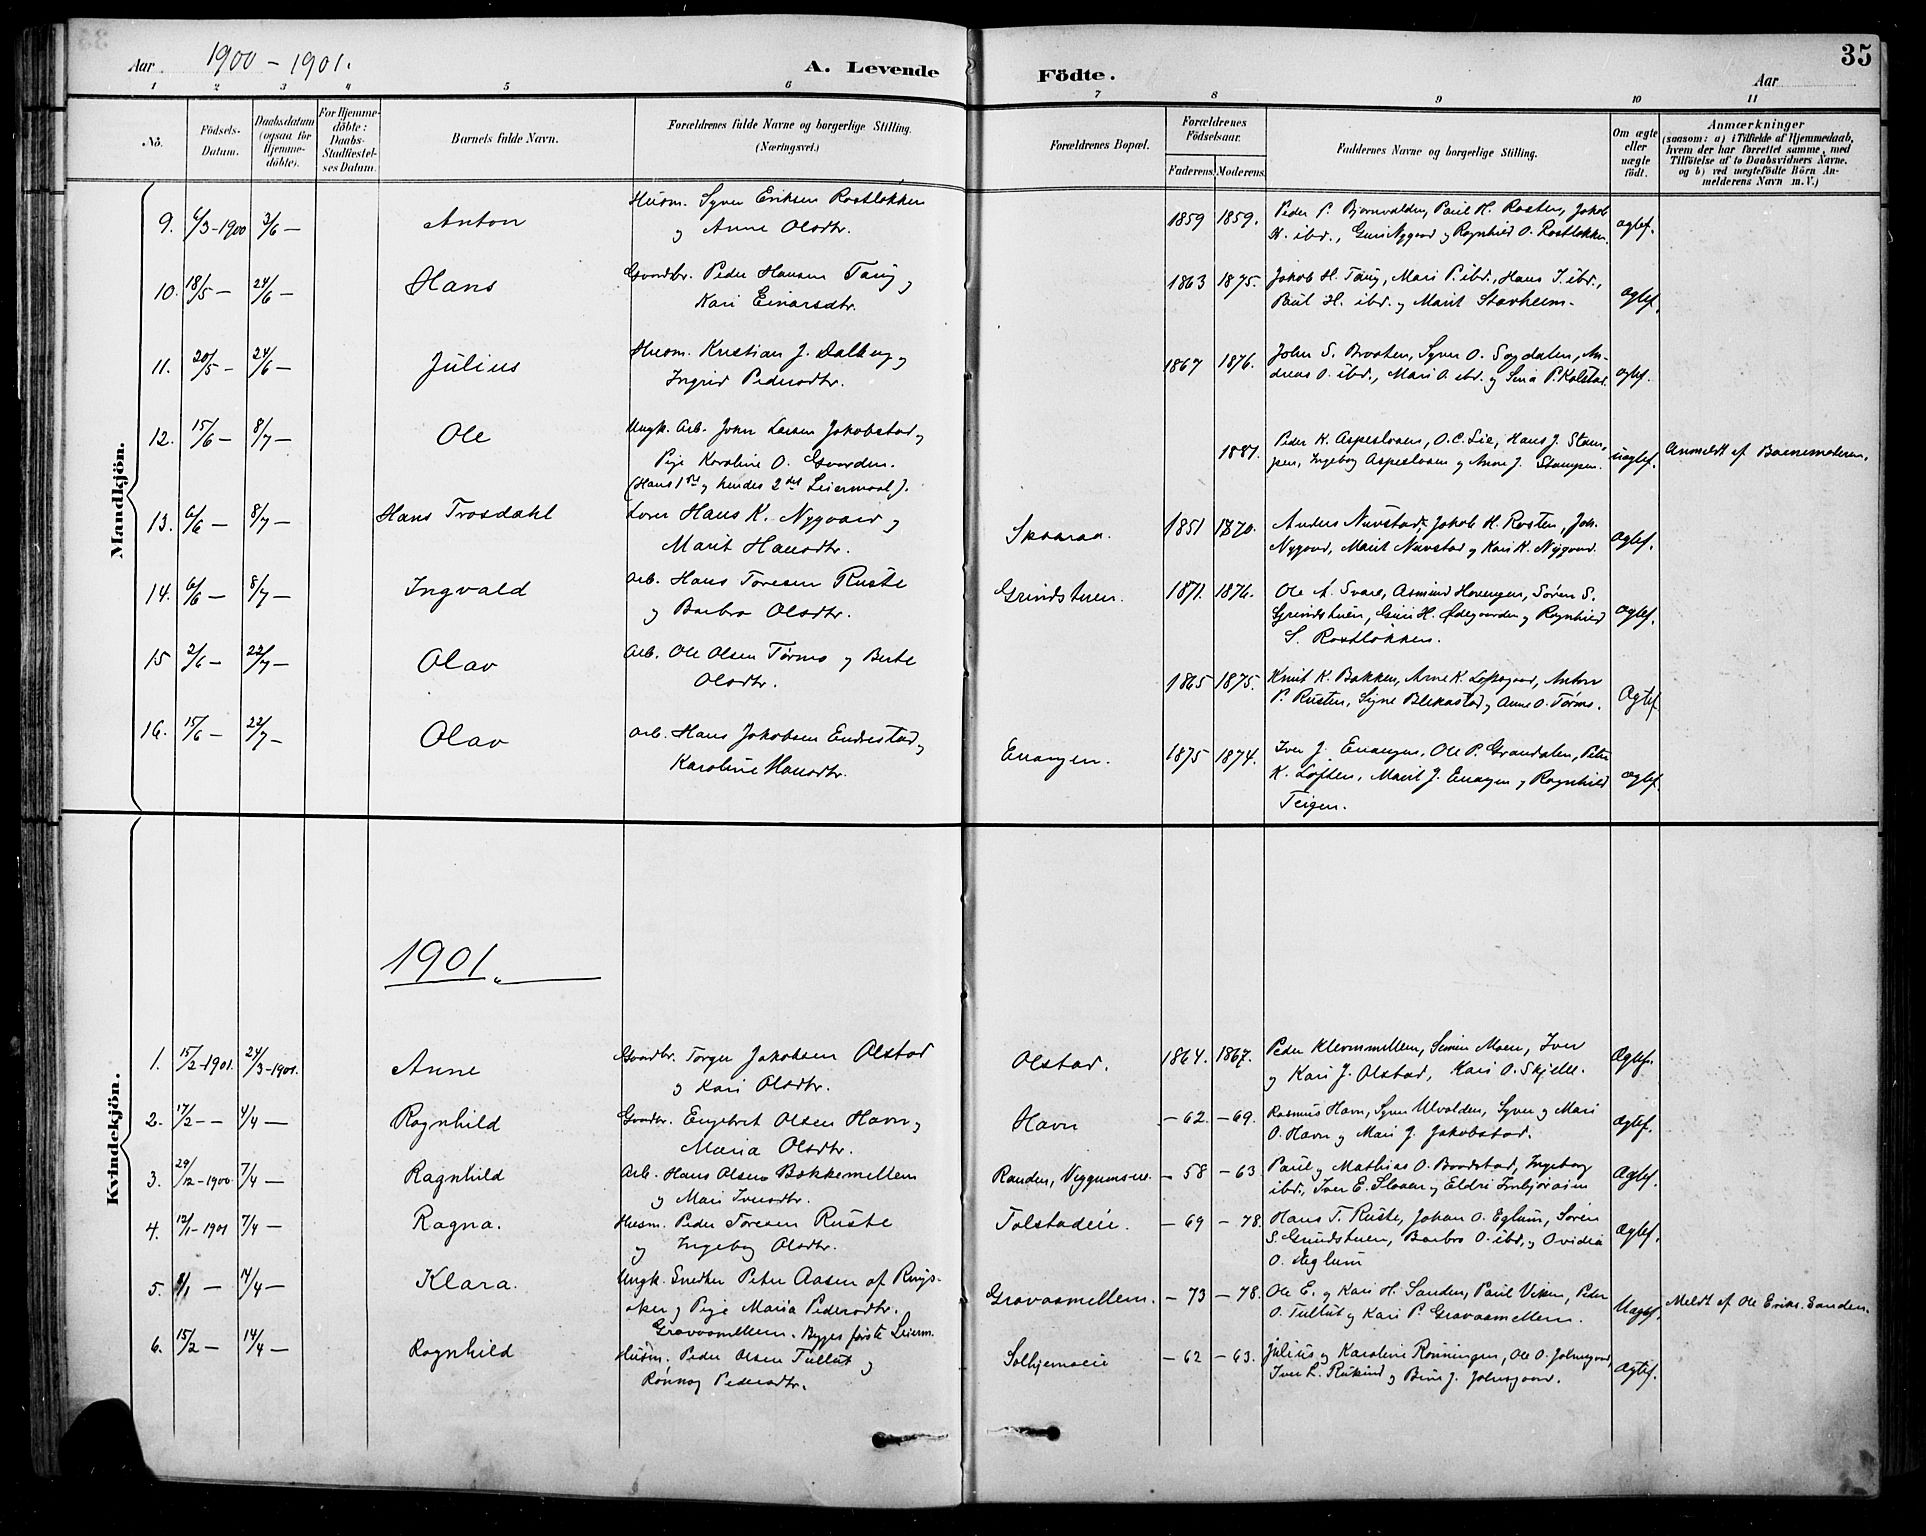 Aar 1900 - 1901. A. Levende Födte. Aar 35
1 2 3 4 5 6 7 8 9 10 11
No.
Födsels-
Datum.
Daabsdatum
(ogsaa for
Hjemme-
döbte).
For Hjemme-
döbte:
Daabs-
Stadfæstel-
ses Datum.
Barnets fulde Navn.
Forældrenes fulde Navne og borgerlige Stilling.
(Næringsvei.)
Forældrenes Bopæl.
Forældrenes
Födselsaar.
Faderens. Moderens.
Faddernes Navne og borgerlige Stilling.
Om ægte
eller
uægte
födt.
Anmærkninger
(saasom: a) i Tilfælde af Hjemmedaab,
hvem der har forrettet samme, med
Tilföielse af to Daabsvidners Navne.
og b) ved uægtefödte Börn An-
melderens Navn m. V.)
Mandkjön.
9. 6/3-1900 3/6 — Anton
Husm. Syver Eriksen Rostløkken
og Anne Olsdtr.
1859 1859.
Peder P. Bjornvolden, Paul H. Rosten, Jakob
H. ibd., Guri Nygaard og Ragnhild O. Rostløkken.
ægtef.
10. 18/5 — 24/6 — Hans
Gaardbr. Peder Hansen Taug og
Kari Einarsdtr.
1863 1875.
Jakob H. Taug, Mari P. ibd., Hans J. ibd.,
H. ibd. og Marit Stavheim.
ægtef.
11. 20/5 — 24/6 — Julius
Husm. Kristian J. Dalheug og
Ingrid Pedersdtr.
1867 1876.
John S. Braaten, Syver O. Sogdalen, An-
dreas O. ibd., Mari O. ibd. og Sina P. Kolstad.
ægtef.
12. 15/6 — 8/7 — Ole
Ungk. Arb. John Larsen Jakobstad og
Pige Karoline O. Gaarden.
(Hans 1ste og hendes 2det Leiermaal).
1881.
Peder K. Aspesloaen, O. C. Lie, Hans J. Stam-
pen, Ingeborg Aspesloaen og Anne J. Stampen.
uægtef.
Anmeldt af Barnemoderen.
13. 6/6 — 8/7 — Hans Trosdahl
Lærer Hans K. Nygaard og
Marit Hansdtr.
Skaaraa.
1851 1870.
Anders Nuvstad, Jakob H. Rosten, Joh.
Nygaard, Marit Nuvstad og Kari K. Nygaard.
ægtef.
14. 6/6 — 8/7 — Ingvald
Arb. Hans Toresen Ruste
og Barbro Olsdtr.
Grindstuen.
1871. 1876.
Ole A. Svare, Asmund Haugen, Søren S.
Grindstuen, Guri H. Ødegaarden og Ragnhild
S. Rostløkken.
ægtef.
15 2/6 — 22/7 — Olav
Arb. Ole Olsen Tørmo og Berte
Olsdtr.
1865 1875.
Knut K. Bakken, Arne K. Loftsgaard, Anton
P. Rusten, Signe Blekastad og Anne O. Tørmo.
Ægtef.
16. 15/6 — 22/7 — Olav
Arb. Hans Jakobsen Endrestad og
Karoline Hansdtr.
Enangen.
1875 1874.
Iver J. Enangen, Ole P. Grandalen, Peter
K. Loften, Marit J. Enangen og Ragnhild
Teigen.
ægtef.
1901.
Kvindekjön.
1. 15/2-1901. 24/3-1901. Anne
Gaardbr. Torger Jakobsen Olstad
og Kari Olsdtr.
Olstad.
1864. 1867.
Peder Klemmellem, Simen Moen, Iver
og Kari J. Olstad, Kari O. Skjelle.
Ægtef.
2. 17/2 — — 4/4 — Ragnhild
Gaardbr. Engebret Olsen Havn og
Maria Olsdtr.
Havn
— 62. — 69.
Rasmus Havn, Syver Ulvolden, Syver og Mari
O. Havn og Mari J. Jakobstad.
Ægtef.
3. 29/12-1900. 7/4 — Ragnhild
Arb. Hans Olsen Bakkemellem
og Mari Iversdtr.
Randen,
— 58 — 63
Paul og Mathias O. Baadstad, Ingeborg
ibd., Iver E. Sloaen og Eldri
Ægtef.
4. 12/1-1901 7/4 — Ragna.
Husm. Peder Toresen Ruste
og Ingeborg Olsdtr.
Tolstadeie.
— 69 — 78.
Hans T. Ruste, Johan O. Eglum, Søren
S. Grindstuen, Barbro O. ibd. og Ovidia
O. Æglum
Ægtef.
5. 8/1 — 14/4 — Klara.
Ungk. Snedker Peter Aasen af Rings-
aker og Pige Maria Pedersdtr.
Gravaasmellem. Begges første Leierm.
Gravaasmellem.
— 73 — 78.
Ole E. og Kari H. Sanden, Paul Viken, Peder
O. Tullut og Kari P. Gravaasmellem.
Uægtef.
Meldt af Ole Eriks. Sanden.
6. 15/2 — 14/4 — Ragnhild
Husm. Peder Olsen Tullut og
Rønnog Pedersdtr.
Solhjemseie
— 62 — 63.
Julius og Karoline Rønningen, Ole O. Johnsgaard,
Iver L. Ruklind og J. Johnsgaard.
Ægtef.